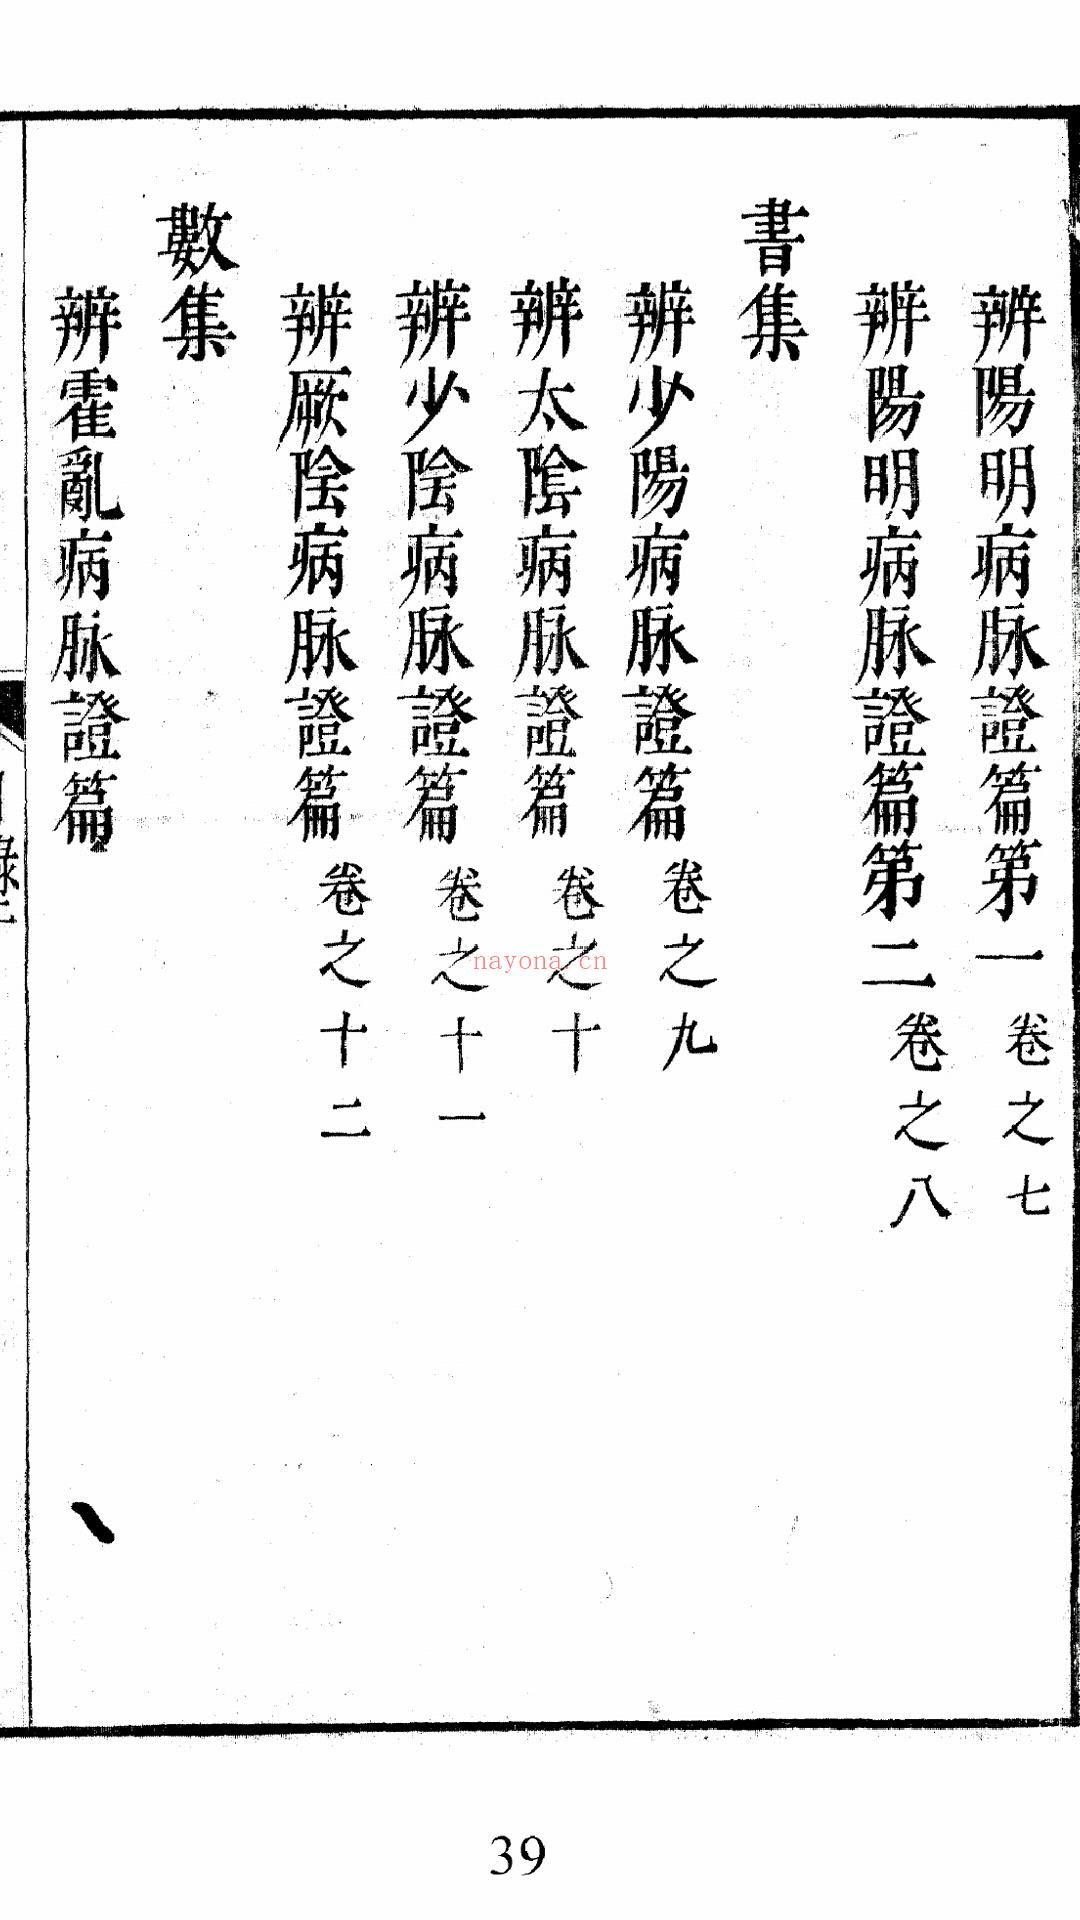 辨陽明病脉證篇第一 卷之七
辨陽明病脉證篇第二 卷之八
書集
辨少陽病脉證篇 卷之九
辨太陰病脉證篇 卷之十
辨少陰病脉證篇 卷之十一
辨厥陰病脉證篇 卷之十二
數集
辨霍亂病脉證篇
nayona.cn
39